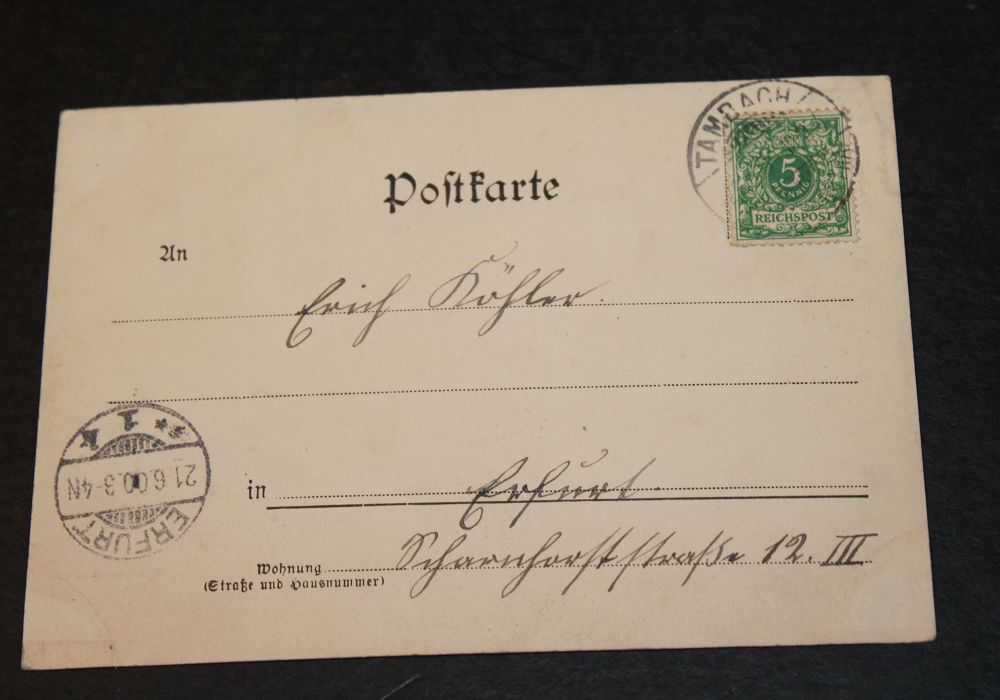 TAMBACH
5
PFENNIG
REICHSPOST
Postkarte
An
Erich Köhler.
in Erfurt.
Wohnung Scharnhorststraße 12. III
(Straße und Hausnummer)
ERFURT
21.6.00.3-4N
* 1 k